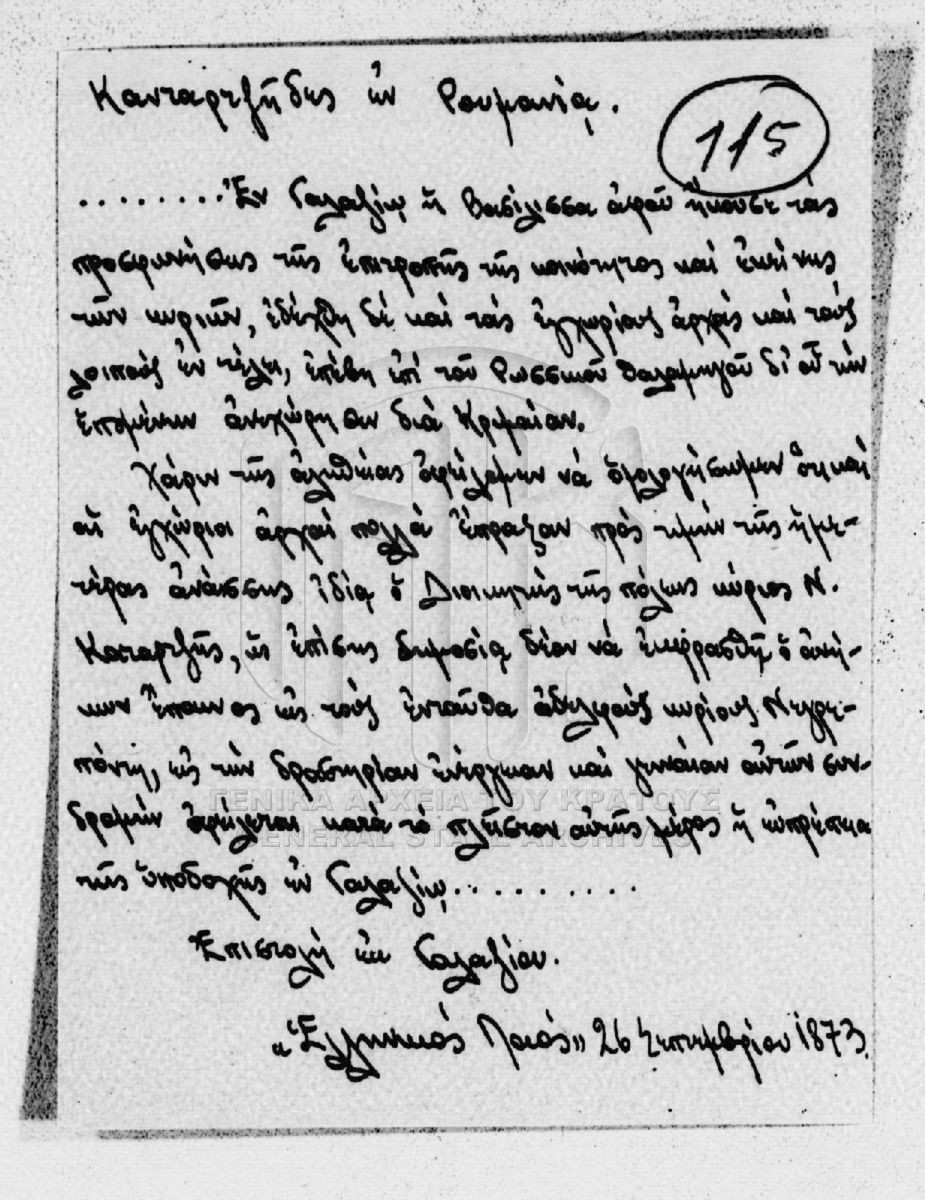 Κανταρτζήδες ἐν Ρουμανίᾳ.
115
.........Ἐν Γαλαζίῳ ἡ Βασίλισσα ἀφοῦ ἤκουσε τάς
προσφωνήσεις τῆς ἐπιτροπῆς τῆς κοινότητος καί ἐκείνης
τῶν κυριῶν, ἐδέχθη δέ καί τάς ἐγχωρίους ἀρχάς καί τούς
λοιπούς ἐν τέλει, ἐπέβη ἐπί τοῦ Ρωσσικοῦ θαλαμηγοῦ δι' οὗ τήν
ἑπομένην ἀνεχώρησεν διά Κριμαίαν.
Χάριν τῆς ἀληθείας ὀφείλομεν νά ὁμολογήσωμεν ὅτι καί
αἱ ἐγχώριοι ἀρχαί πολλά ἔπραξαν πρός τιμήν τῆς ἡμε-
τέρας ἀνάσσης ἰδίᾳ ὁ Διοικητής τῆς πόλεως κύριος Ν.
Καταρτζῆς, ὡς ἐπίσης δημοσίᾳ δέον νά ἐκφρασθῇ ὁ ἀνή-
κων ἔπαινος εἰς τούς ἐνταῦθα ἀδελφούς κυρίους Νεγρε-
πόντη, εἰς τήν δραστηρίαν ἐνέργειαν καί γενναίαν αὐτῶν συν-
δρομήν ὀφείλεται κατά τό πλεῖστον αὐτῆς μέρος ἡ εὐπρέπεια
τῆς ὑποδοχῆς ἐν Γαλαζίῳ..........
Ἐπιστολή ἐκ Γαλαζίου.
«Ἑλληνικός Νοιός» 26 Σεπτεμβρίου 1873.
ΓΕΝΙΚΑ ΑΡΧΕΙΑ ΤΟΥ ΚΡΑΤΟΥΣ
GENERAL STATE ARCHIVES